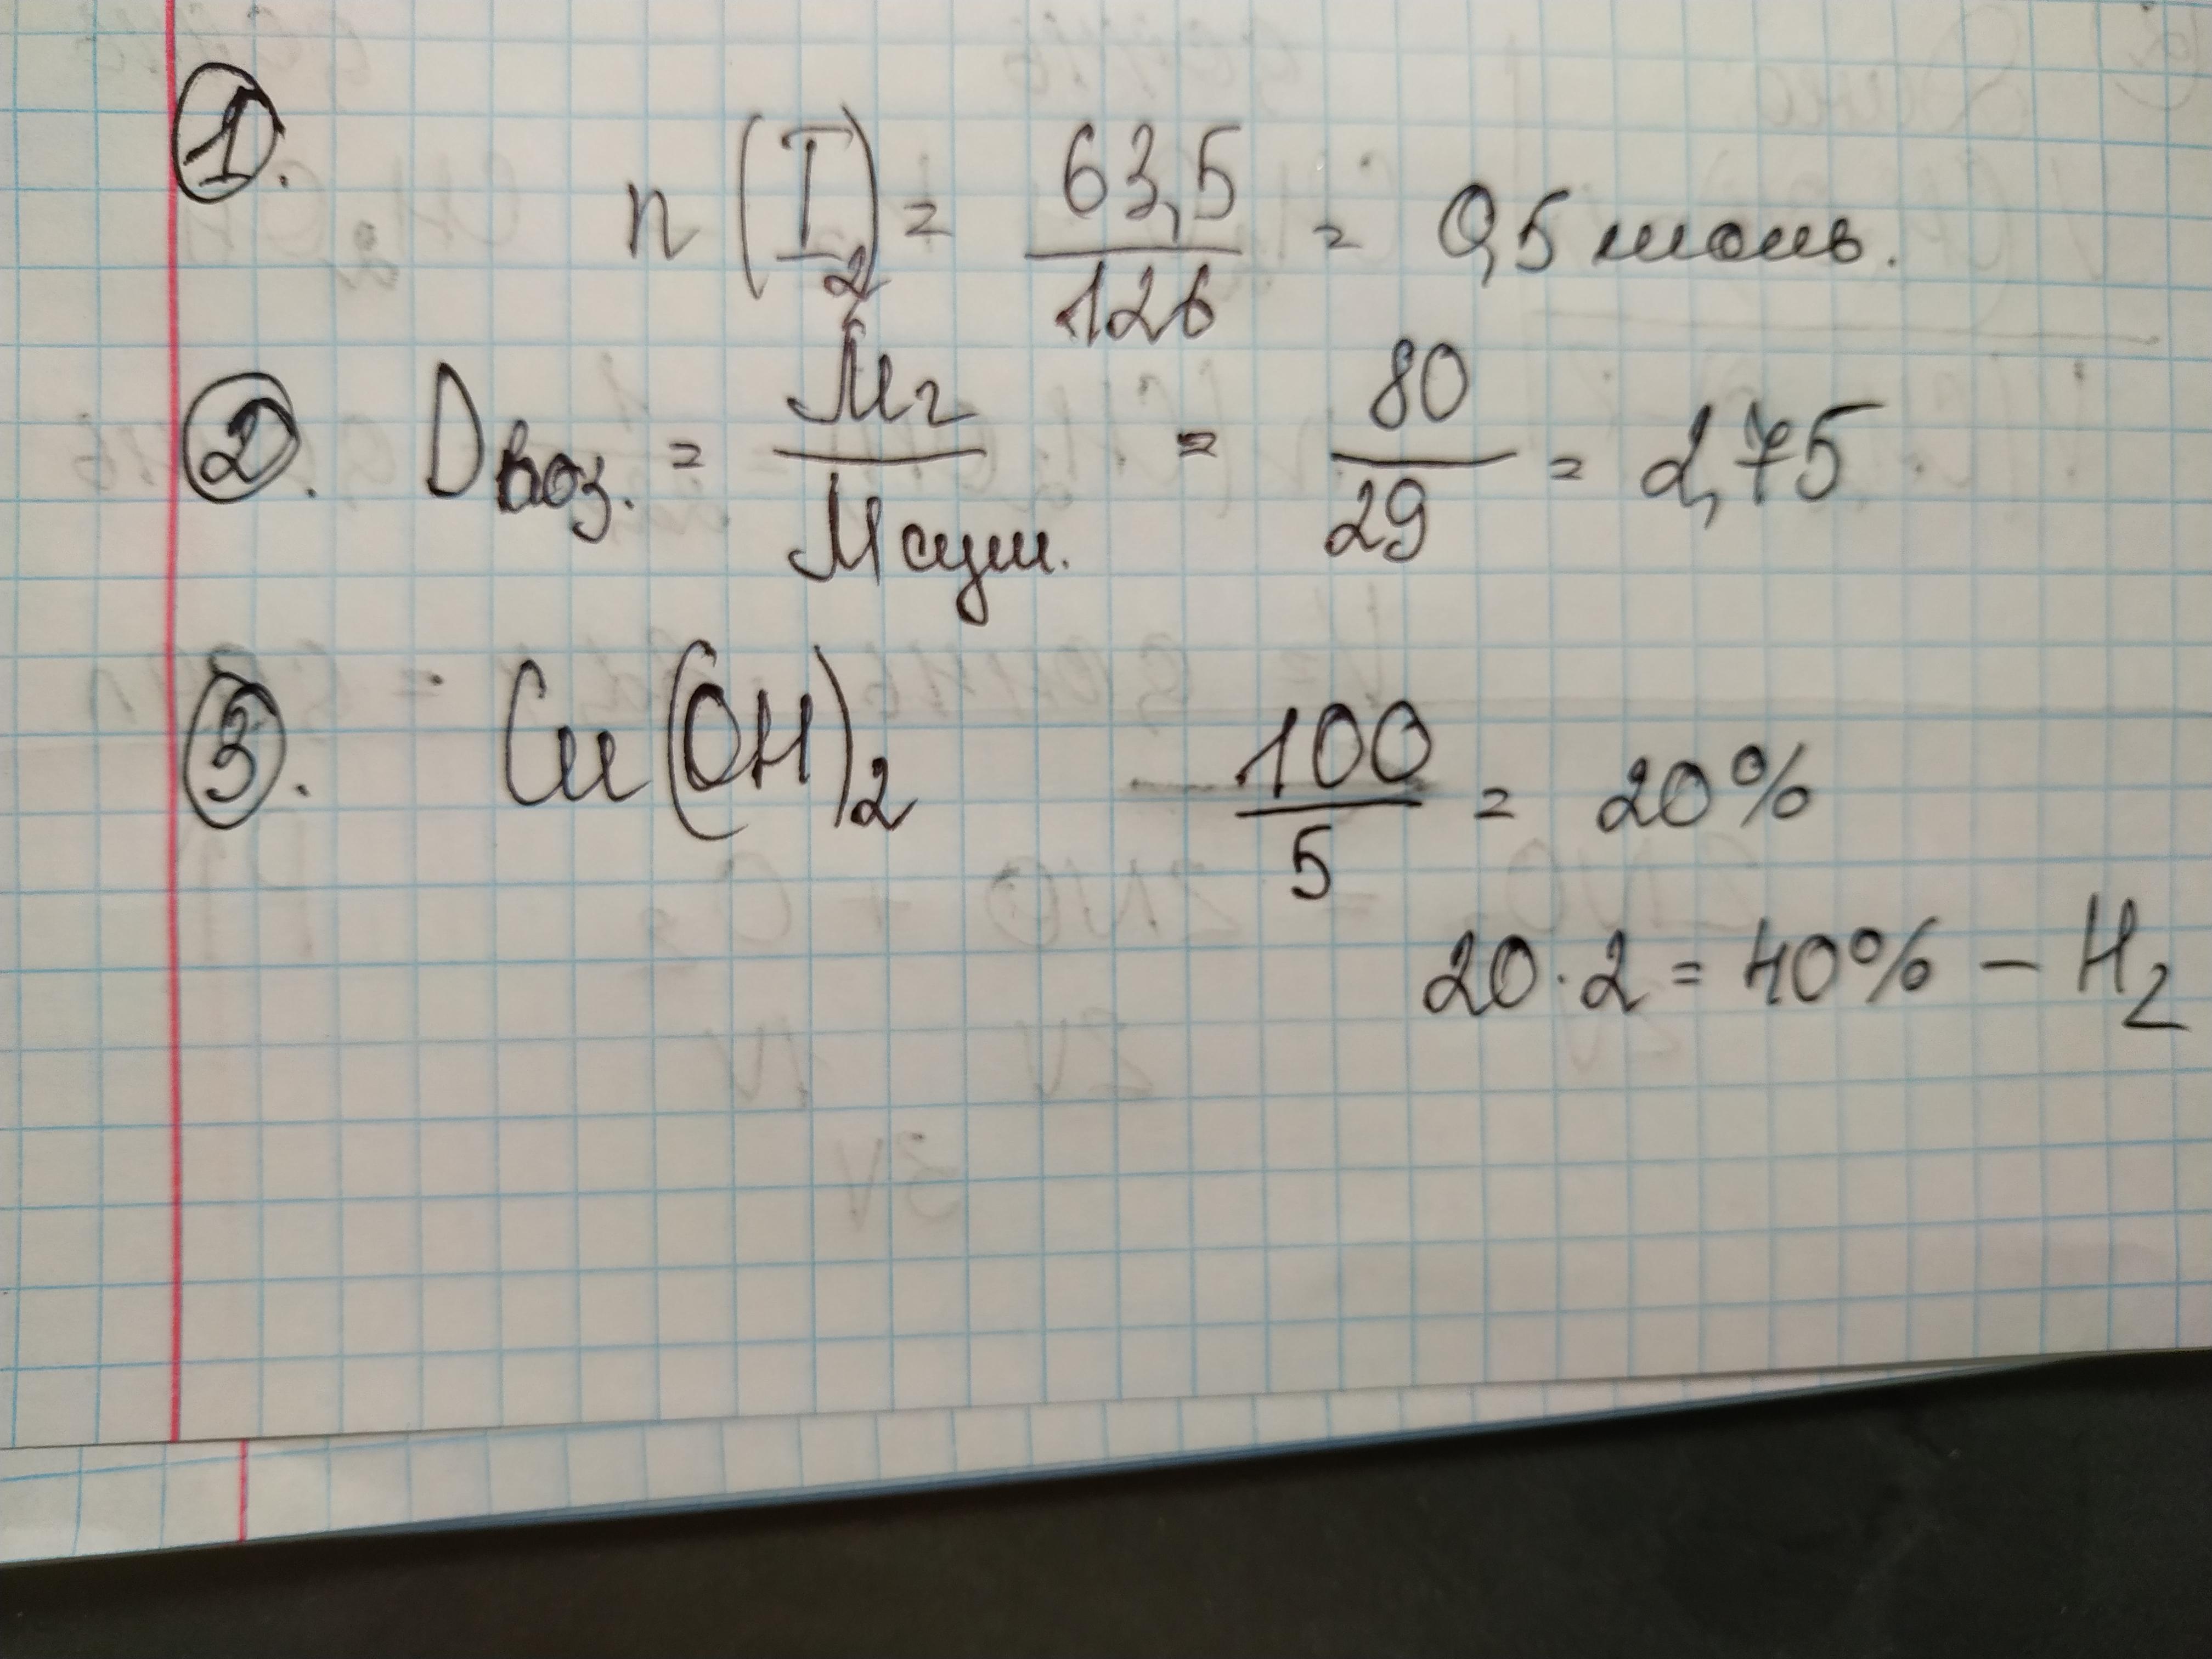 1. n (I2) = 63,5 / 126 = 0,5 моль.
2. Dвоз. = Mг / Mсуш. = 80 / 29 = 2,75
3. Cu(OH)2 100 / 5 = 20%
20 · 2 = 40% – H2